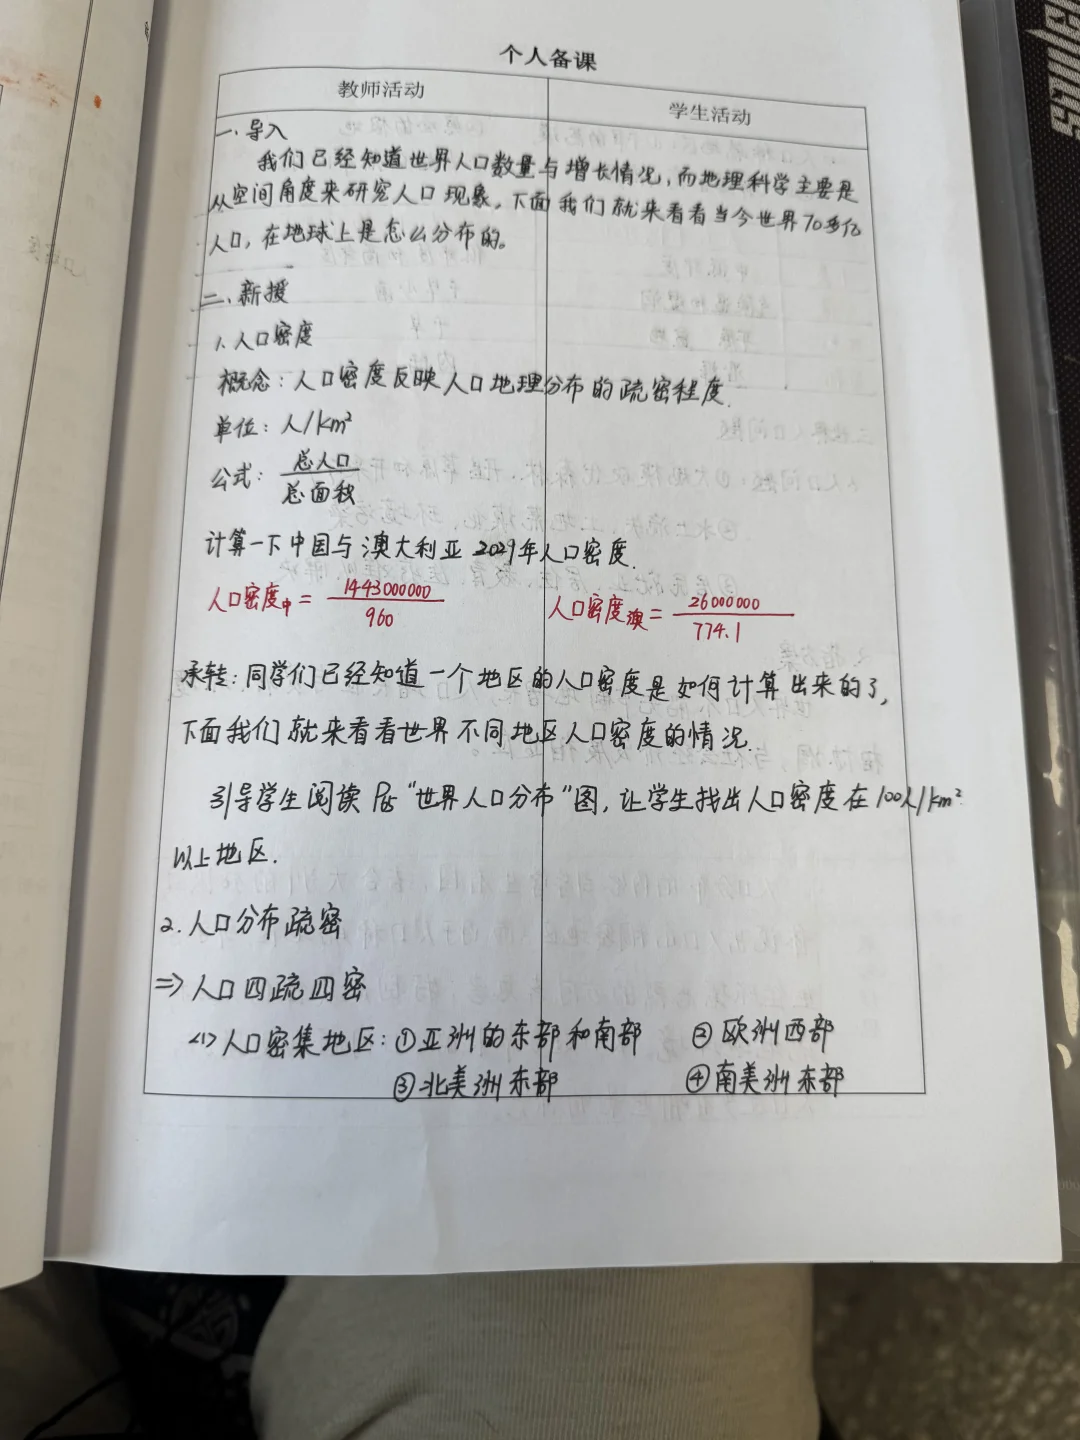 个人备课
教师活动
学生活动
一、导入
我们已经知道世界人口数量与增长情况,而地理科学主要是
从空间角度来研究人口现象,下面我们就来看看当今世界70多亿
人口,在地球上是怎么分布的。
二、新授
1.人口密度
概念:人口密度反映人口地理分布的疏密程度.
单位:人/km²
公式:总人口
总面积
计算一下中国与澳大利亚 年人口密度.
人口密度中= 1443000000
960
人口密度澳= 26000000
774.1
承转:同学们已经知道一个地区的人口密度是如何计算出来的了,
下面我们就来看看世界不同地区人口密度的情况.
引导学生阅读 "世界人口分布"图,让学生找出人口密度在100人/km²
以上地区.
2.人口分布疏密
⇒人口四疏四密
<1>人口密集地区:①亚洲的东部和南部 ②欧洲西部
③北美洲东部 ④南美洲东部